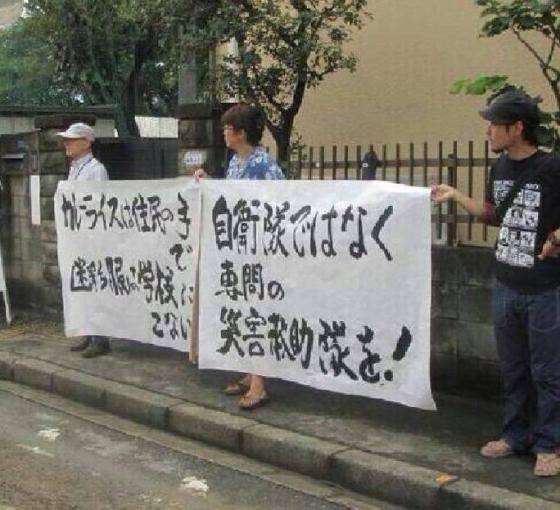 カレーライスは住民の手
で
迷彩服は学校に
こない
自衛隊ではなく
専問の
災害救助隊を!